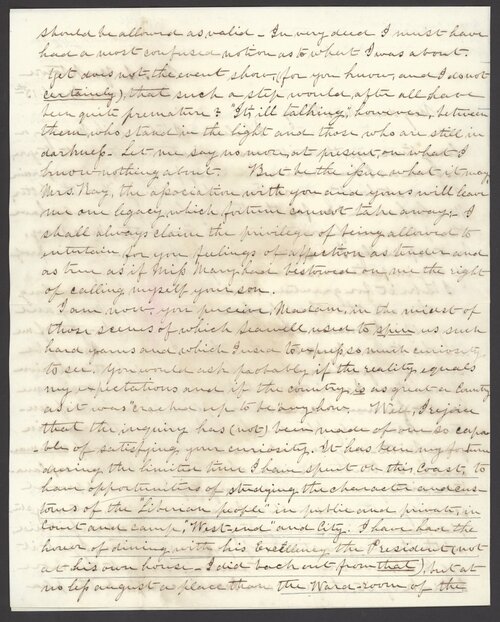 should be allowed as valid - In very deed I must have
had a most confused notion as to what I was about.
Yet does not the event show, (for you know, and I do not
certainly), that such a step would, after all have
been quite premature? "It's ill talking," however, between
them, who stand in the light and those who are still in
darkness. Let me say no more, at present, on what I
know nothing about. But be the issue what it may,
Mrs. Ray, the association with you and yours will leave
me one legacy which fortune cannot take away - I
shall always claim the privilege of being allowed to
entertain for you feelings of affection as tender and
as true as if Miss Mary had bestowed on me the right
of calling myself your son.
I am now, you perceive, Madam, in the midst of
those scenes of which Seawell used to spin us such
hard yarns and which I used to express so much curiosity
to see. You would ask probably if the reality equals
my expectations and if the country is as great a Country
as it was "cracked up to be" anyhow. Well, I rejoice
that the inquiry has (not) been made of one so capa-
ble of satisfying your curiosity. It has been my fortune
during the limited time I have spent on this Coast, to
have opportunities of studying the character and cus-
toms of the "Liberian people" in public and private, in
court and camp, "West-end" and City. I have had the
honor of dining with his Excellency the President (not
at his own house - I did back out from that), but at
no less august a place than the Ward-room of the